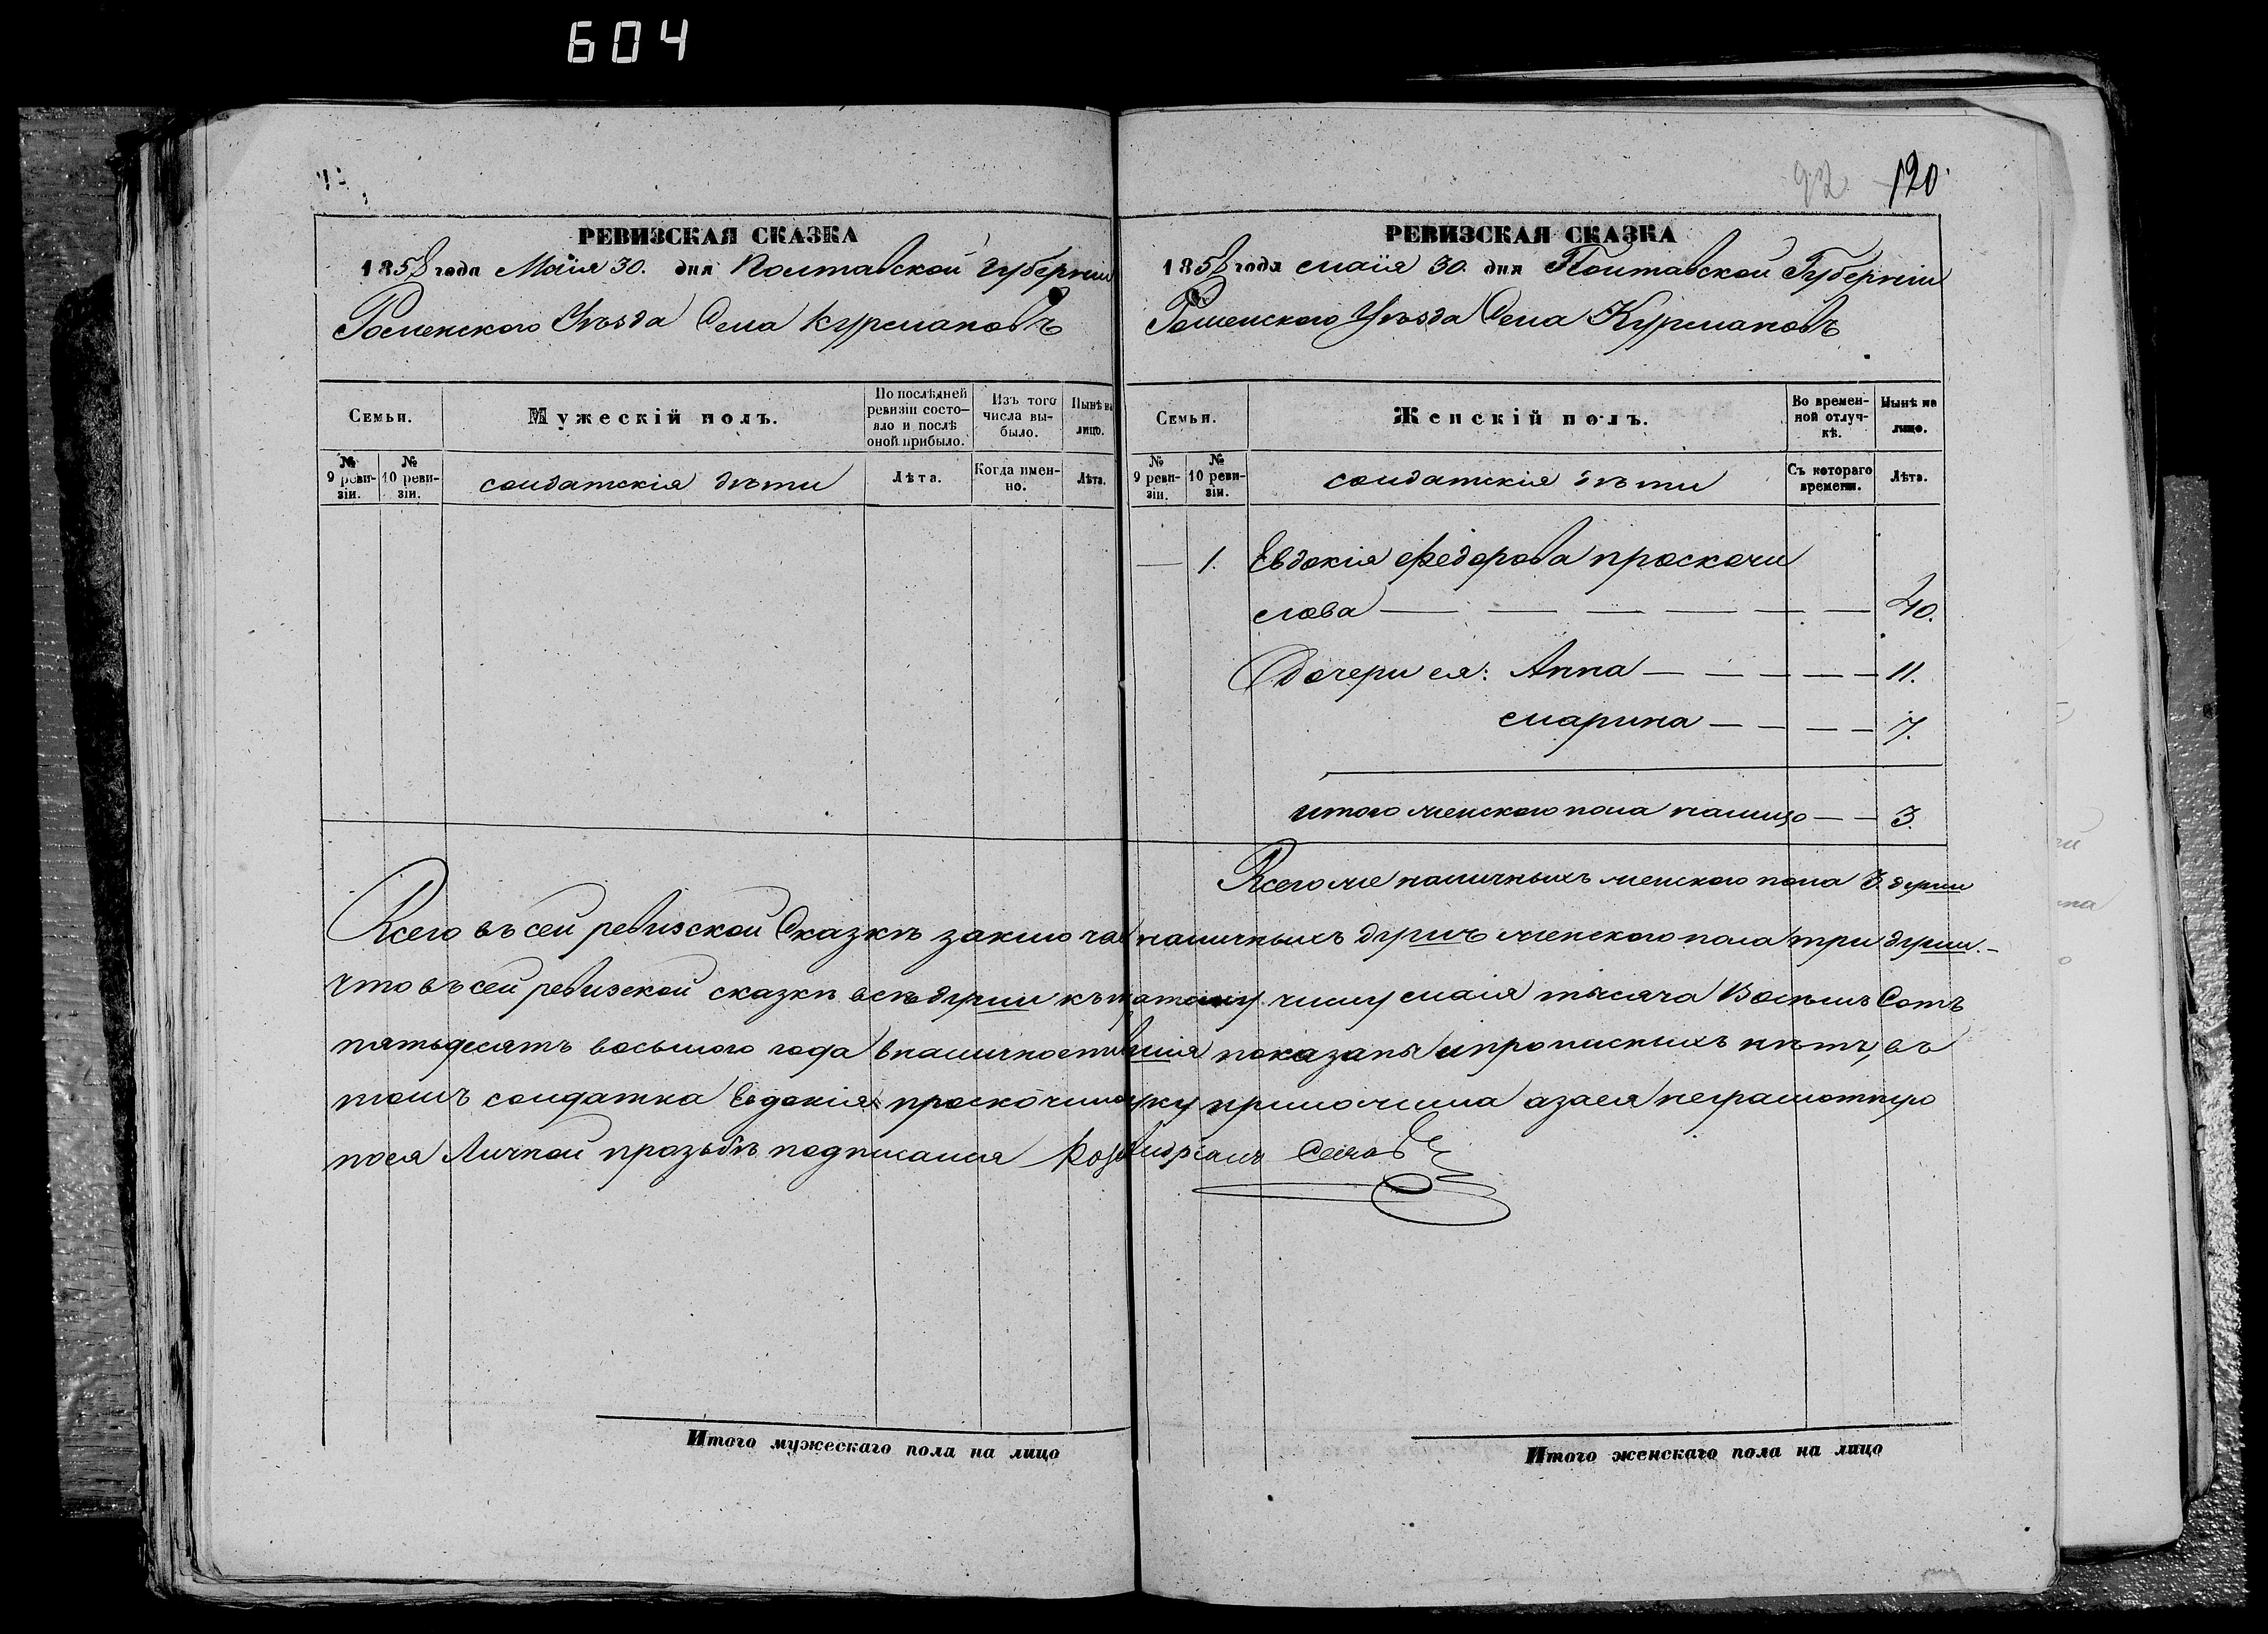 604
92 120.
РЕВИЗСКАЯ СКАЗКА
1858 года Маія 30. дня Полтавской Губерніи
Роменского Уѣзда Села Курмановъ
Семьи. Мужескій полъ. По послѣдней ревизіи состояло и послѣ оной прибыло. Изъ того числа выбыло. Нынѣ на лицо.
№ 9 ревизіи. № 10 ревизіи. солдатскія дѣти Лѣта. Когда именно. Лѣта.
РЕВИЗСКАЯ СКАЗКА
1858 года маія 30. дня Полтавской Губерніи
Роменского Уѣзда Села Курмановъ
Семьи. Женскій полъ. Во временной отлучкѣ. Нынѣ на лицо.
№ 9 ревизіи. № 10 ревизіи. солдатскія дѣти Съ котораго времени. Лѣта.
— 1. Евдокія Федорова проскочи
лова — 40.
Дочери ея: Анна — 11.
марина — 7.
итого женского пола налицо — 3.
Всего же наличныхъ женского пола 3 души
Всего въ сей ревизской Сказкѣ заключае наличныхъ душъ женского пола три души.
Что въ сей ревизской сказкѣ всѣ души къ числу маія тысяча Восемь Сотъ
пятьдесятъ восьмого года в наличности показаны и прописныхъ нѣтъ, въ
томъ солдатка Евдокія руку приложила а за ея неграмотную
по ея Личной прозьбѣ подписался
Итого мужескаго пола на лицо
Итого женскаго пола на лицо